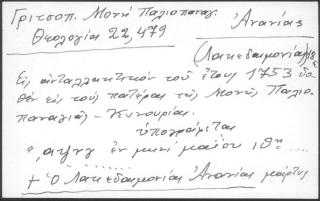 Γριτσοπ. Μονή Παλιοπαναγ.
Θεολογία 22,479
Ἀνανίας
(Λακεδαιμονίας)
Εἰς ἀνταλλακτικόν τοῦ ἔτους 1753 δο-
θέν εἰς τούς πατέρας τῆς Μονῆς Παλιο-
παναγιᾶς - Κυνουρίας.
ὑπογράφεται
"͵αψνγ ἐν μηνί μαΐου ιθῃ ....
+ Ὁ Λακεδαιμονίας Ἀνανίας μάρτυς